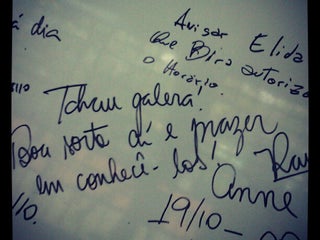 á dia
Avisar Elida
que Bira autorizo
o Horário.
Tchau galera.
Boa sorte aí e prazer
em conhecê-los!
Anne
19/10-